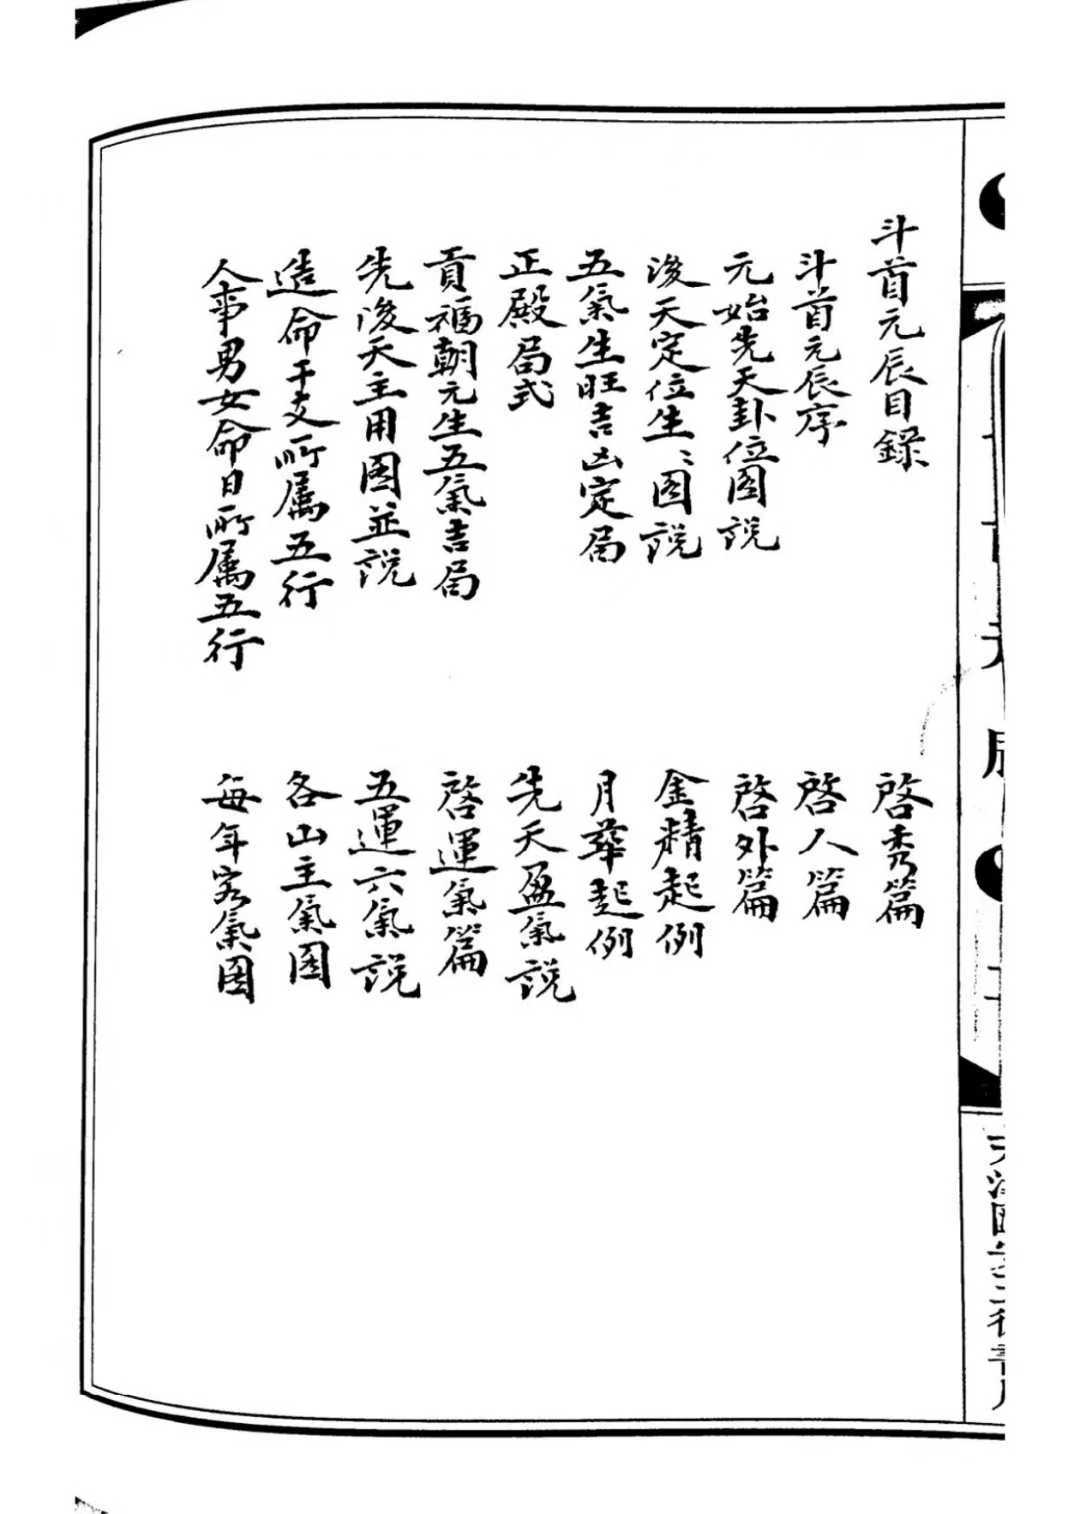 斗首元辰目録
斗首元辰序
元始先天卦位图説
後天定位生〻图説
五氣生旺吉凶定局
正殿局式
貢福朝元生五氣吉局
先後天主用图並説
造命干支所属五行
人事男女命日所属五行
啓秀篇
啓人篇
啓外篇
金精起例
月華起例
先天盈氣説
啓運氣篇
五運六氣説
各山主氣图
每年客氣图